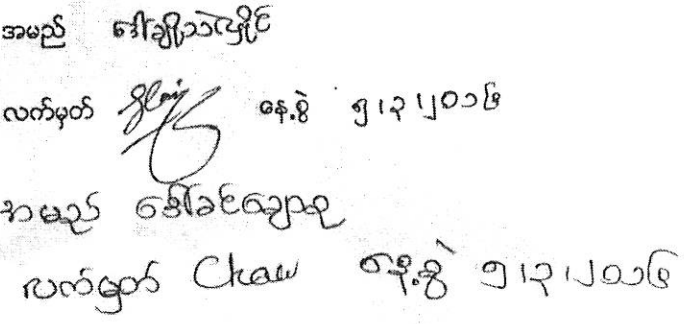 အမည် ဒေါ်ချိုသဲလှိုင်
လက်မှတ် နေ့စွဲ ၅၊၃၊၂၀၁၆
အမည် ဒေါ်ခင်ချောသု
လက်မှတ် Chaw နေ့စွဲ ၅၊၃၊၂၀၁၆